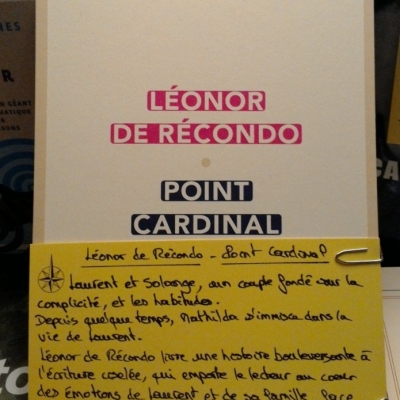 LÉONOR
DE RÉCONDO
POINT
CARDINAL
Léonor de Récondo - Point Cardinal
Laurent et Solange, un couple fondé sur la
complicité, et les habitudes.
Depuis quelque temps, Mathilda s'immisce dans la
vie de Laurent.
Léonor de Récondo livre une histoire bouleversante à
l'écriture ciselée, qui emporte le lecteur au coeur
des émotions de Laurent et de sa famille face